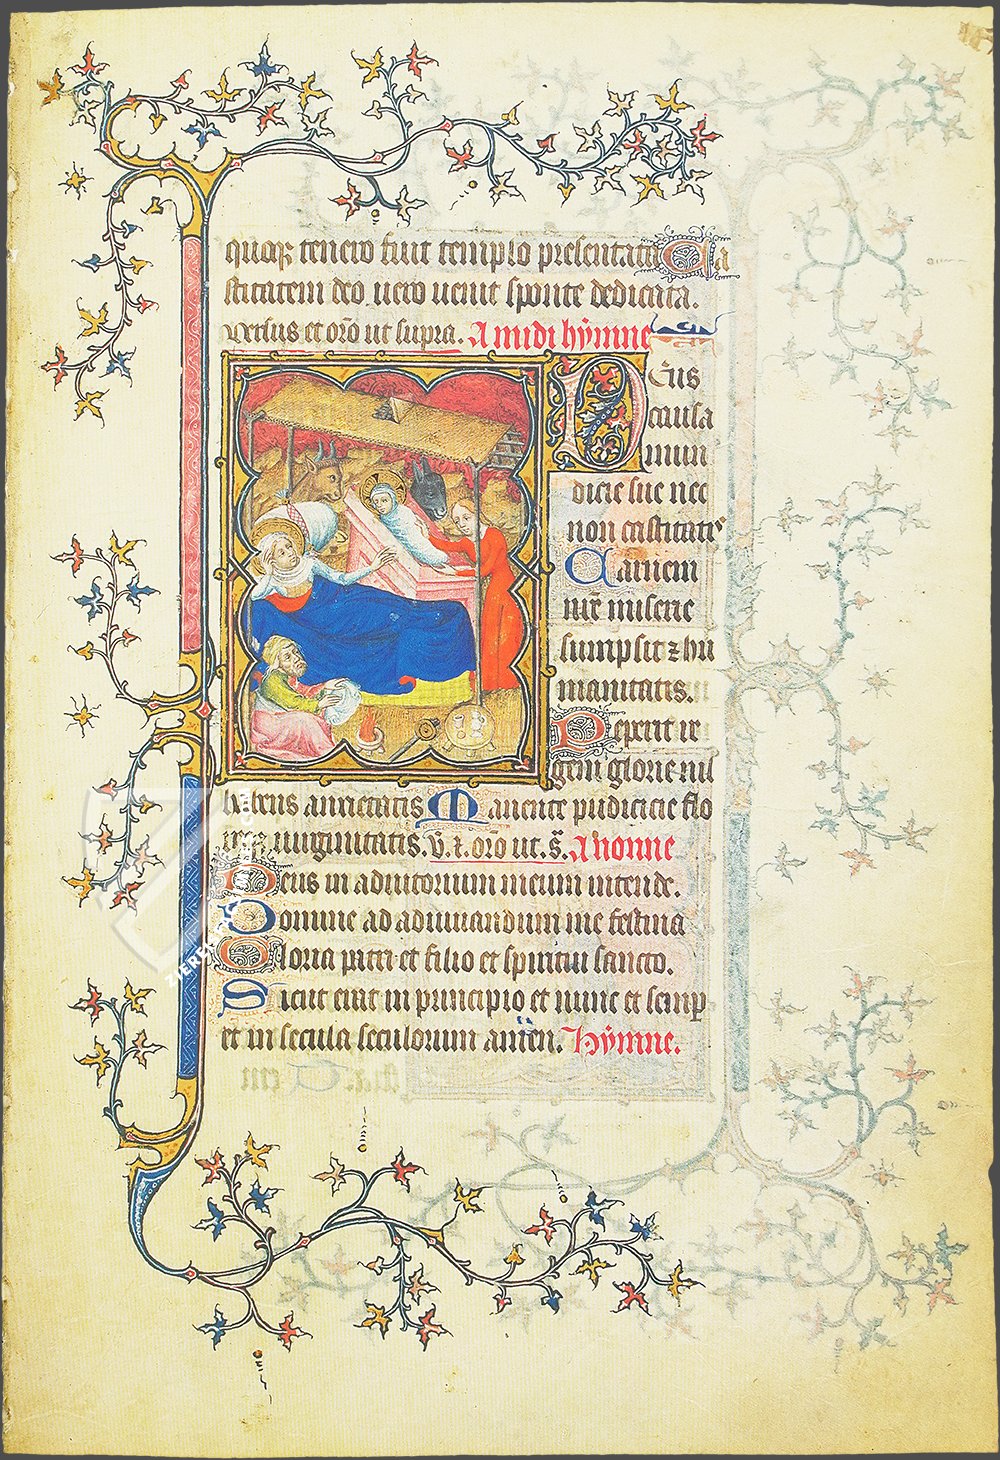 quoqz tenero fuit templo presentata Ca
stitatem deo vero venit sponte dedicata.
versus et oro ut supra. A midi hymne
Deus
causa
mun
dicie sue nec
non castitatis
Carnem
nre miserie
sumpsit z hu
manitatis.
Peperit re
gem glorie nil
habens anxietatis Manente pudicicie flo
virginitatis. v. z. oro ut. s. A nonne
Deus in adiutorium meum intende.
Domine ad adiuuandum me festina
Gloria patri et filio et spiritui sancto.
Sicut erat in principio et nunc et semp
et in secula seculorum amen. Hymne.